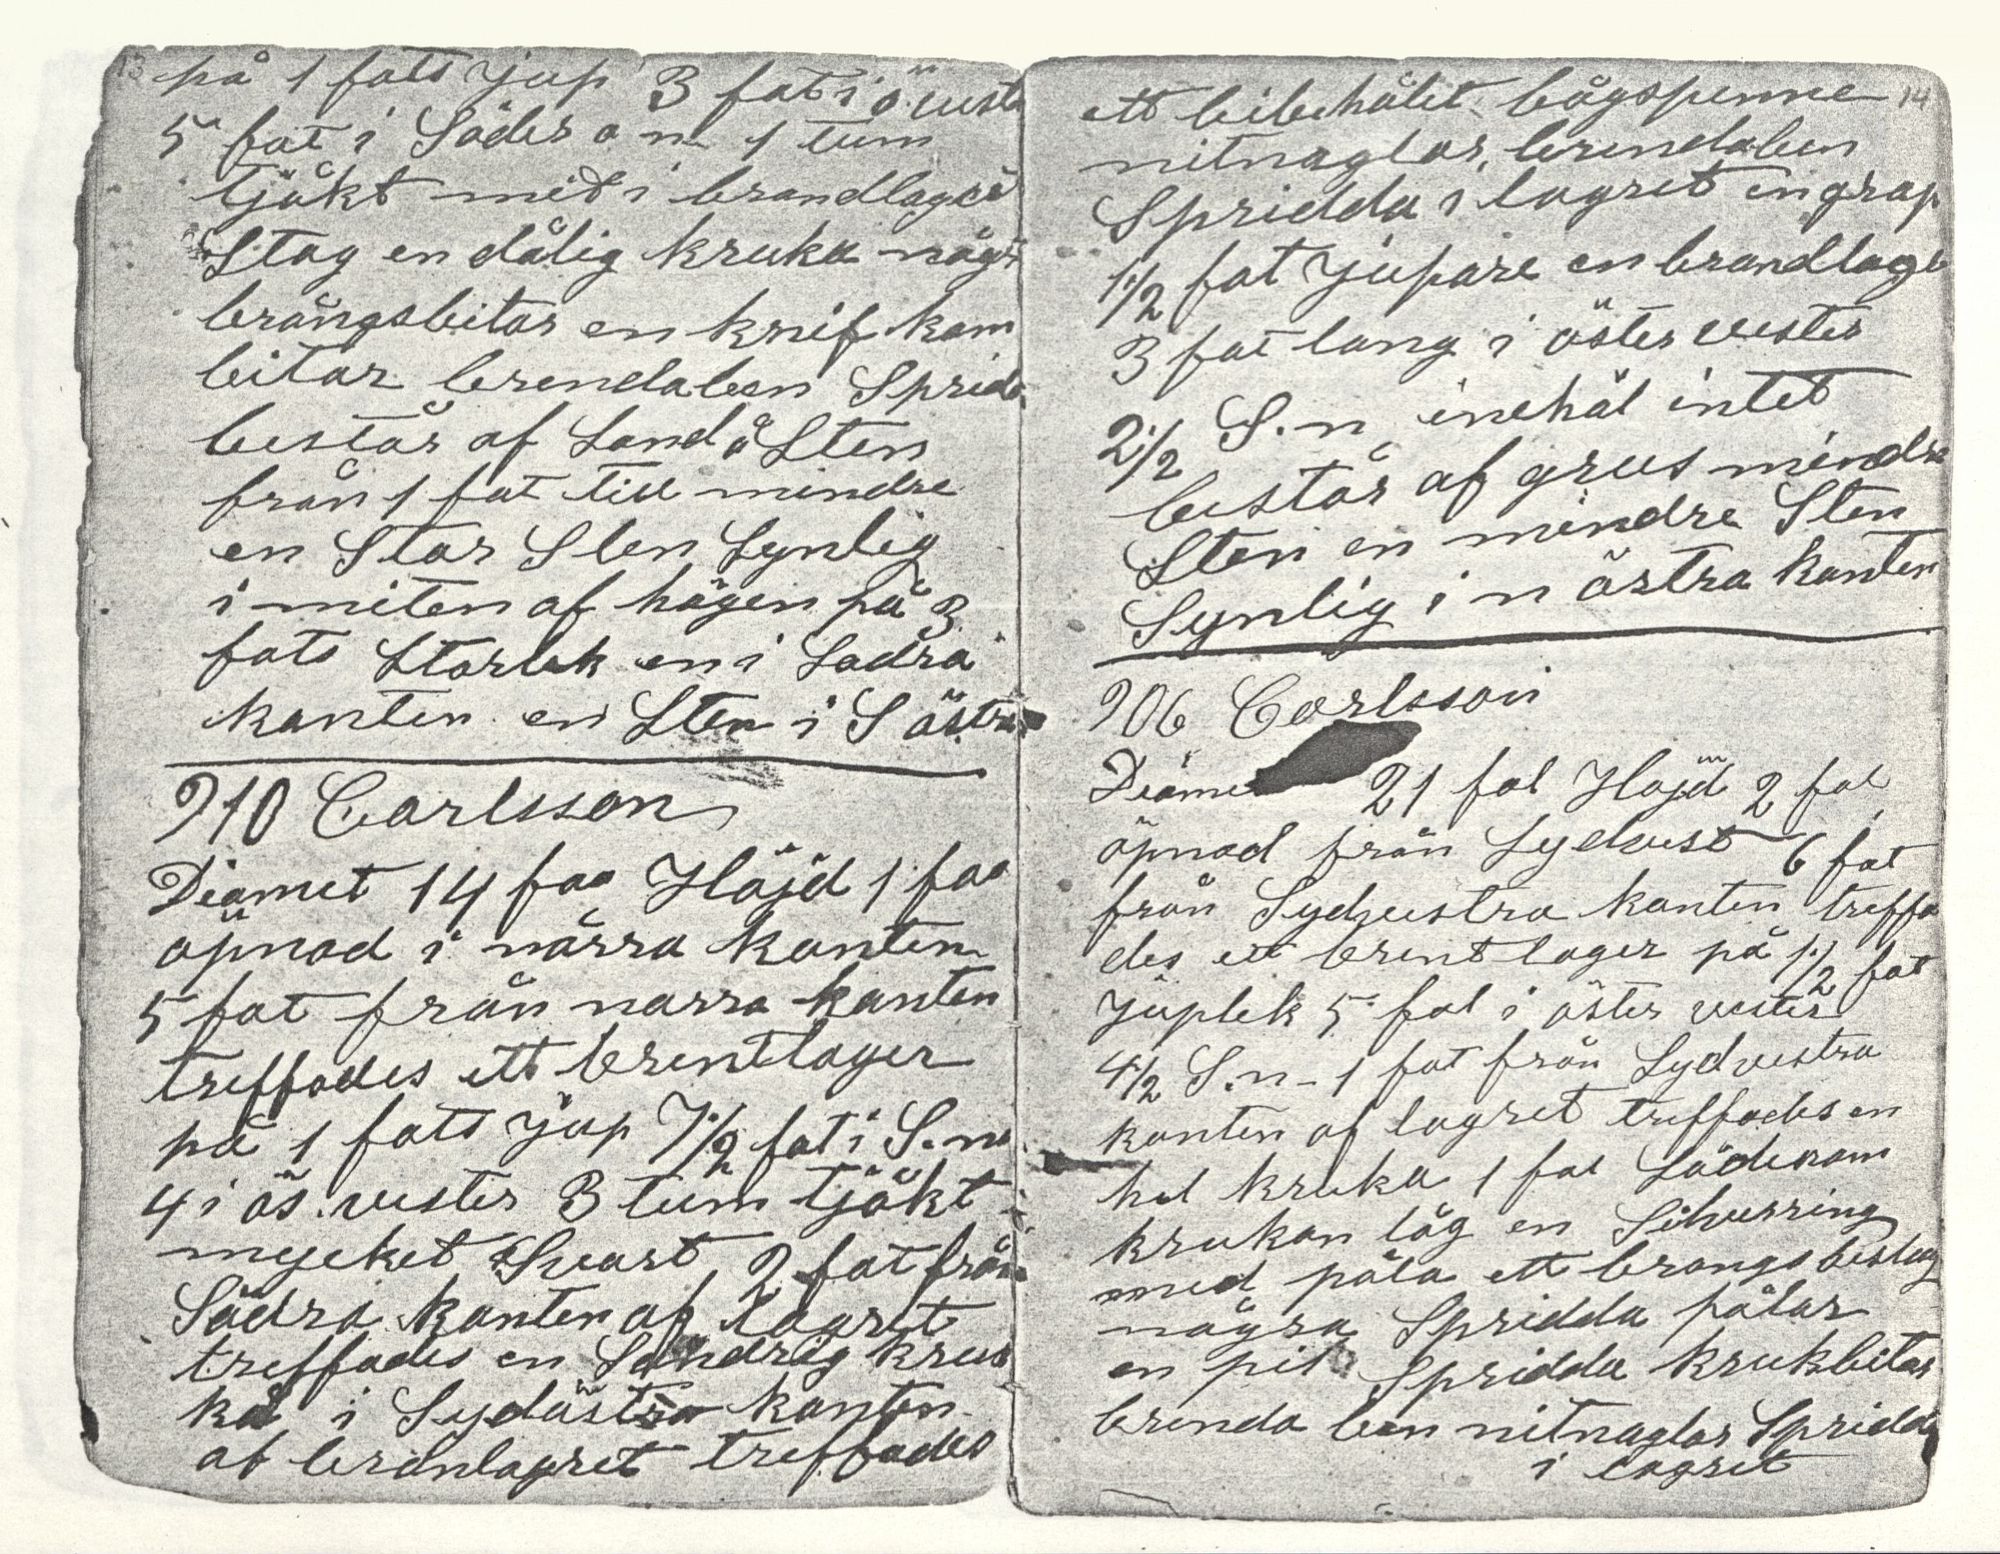 13
på 1 fots jup 3 fot i ö. vest
5 fot i Söder o n 1 tum
tjökt mit i brandlagré
Stog en dålig kruka någr
brångsbitar en knif kam
bitar brendaben Sprid
består af Sand å Sten
från 1 fot till mindre
en Stor Sten Synlig
i miten af högen på 3
fots Storlek en i Södra
kanten en Sten i S östra
910 Carlsson
Diamet 14 fo Höjd 1 fo
öpnad i nörra kanten
5 fot från norra kanten
treffades ett brentlager
på 1 fots jup 7 1/2 fot i S. n
4 i ös. vester 3 tum tjökt
mycket Svart 2 fot från
Södra kanten af lagret
treffades en Söndrig kru
ka i Sydöstra kanten
af brenlagret treffades
14
ett bibehålit bågspenne
nitnaglar, brendaben
Spridda i lagret en grop
1 1/2 fot jupare en brandlage
3 fot lang i öster vester
2 1/2 S. n inehål intet
består af grus mindre
Sten en mindre Sten
Synlig i n östra kanten
906 Carlsson
Diame 21 fot Höjd 2 fot
öpnad från Sydvest 6 fot
från Sydvestra kanten treffa
des ett brent lager på 1 1/2 fot
juplek 5 fot i öster vester
4 1/2 S. n - 1 fot från Sydvestra
kanten af lagret treffades en
hel kruka 1 fot Söderom
krukan låg en Silverring
med påla ett brongsbeslag
några Spridda pålar
en pil Spridda krukbitar
brenda ben nitnaglar Spridda
i lagret